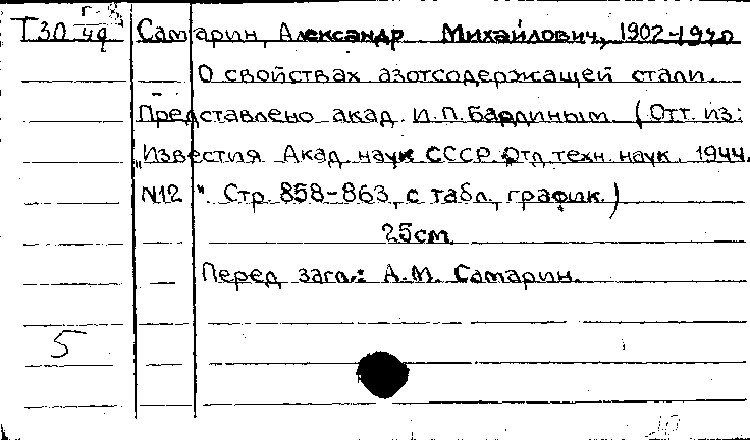 Г-8
Т30 49 Самарин, Александр Михайлович, 1902-1970
О свойствах азотсодержащей стали.
Представлено акад. И.П. Бардиным. (Отт. из:
"Известия Акад. наук СССР. Отд. техн. наук. 1944.
N12". Стр. 858-863, с табл., график.)
25см.
Перед загл.: А.М. Самарин.
5